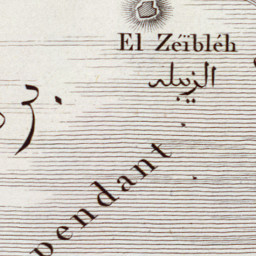 El Zéïbléh
الزيبله
pendant